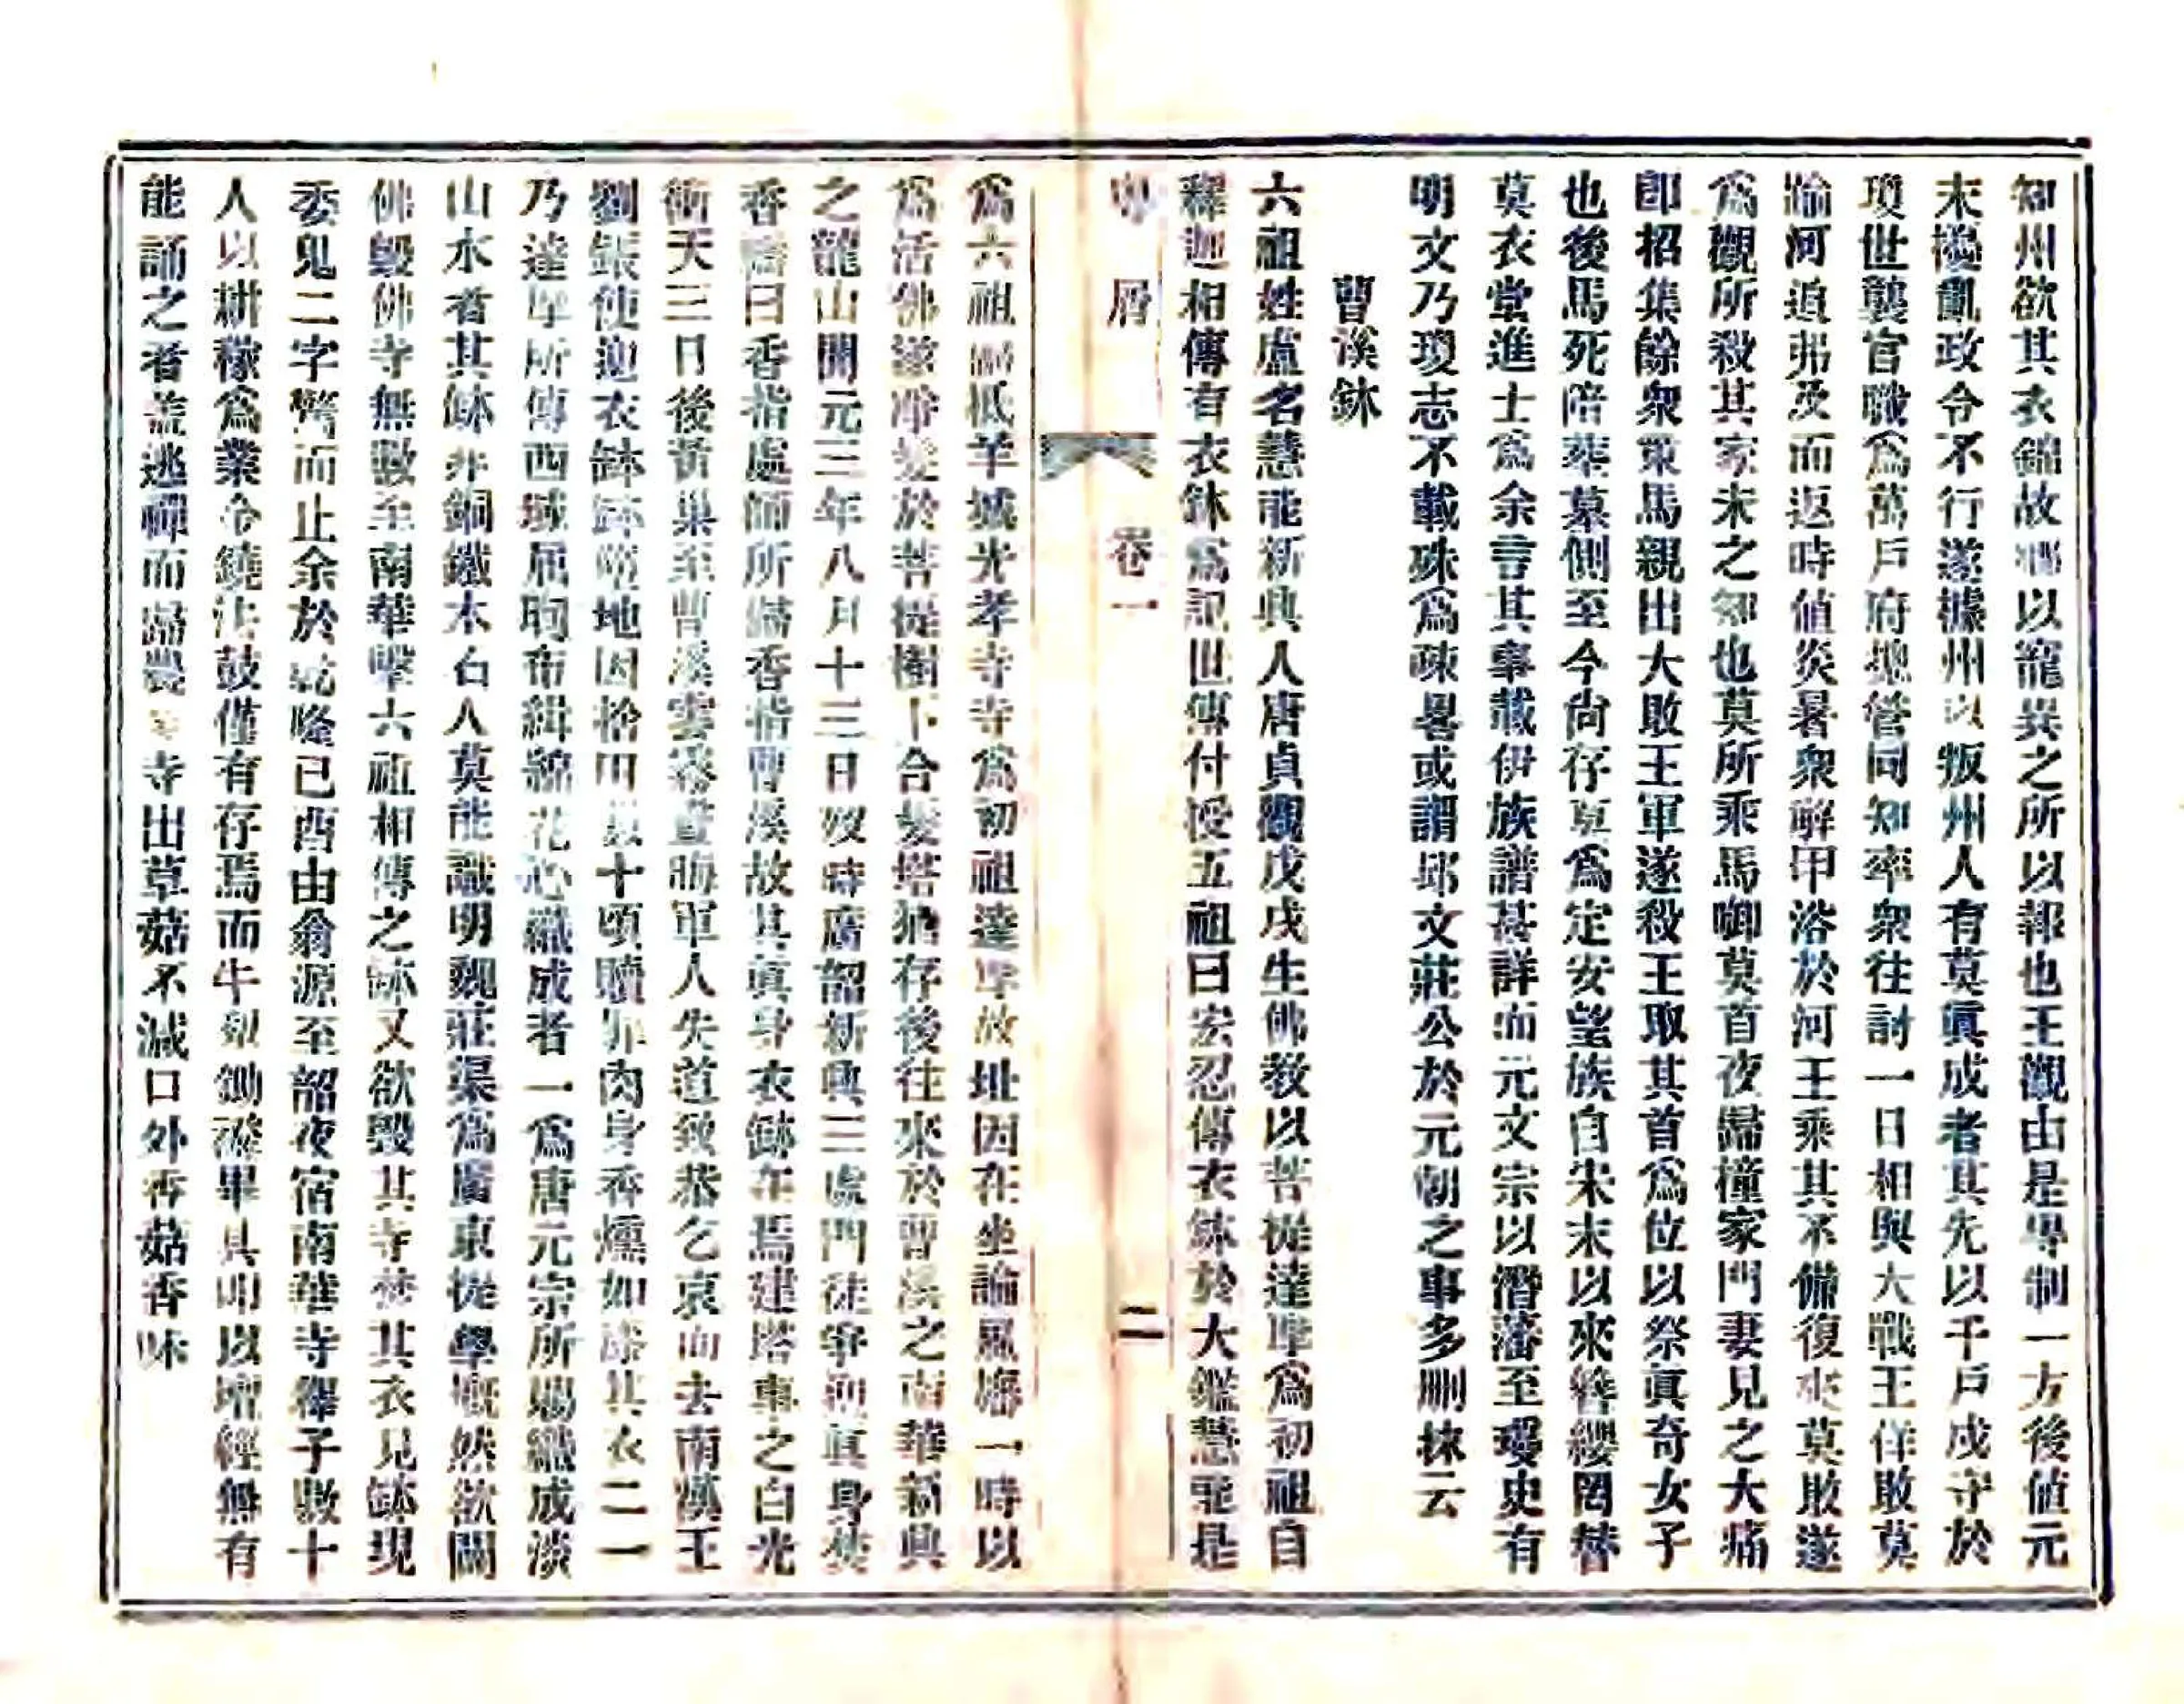 知州欲其衣錦故鄉以寵異之所以報也王觀由是專制一方後值元
末擾亂政令不行遂據州以叛州人有莫真成者其先以千戶戍守於
瓊世襲官職為萬戶府總管同知率衆往討一日相與大戰王佯敗莫
踰河追弗及而返時值炎暑衆解甲浴於河王乘其不備復來莫敗遂
為觀所殺其家未之知也莫所乘馬啣莫首夜歸撞家門妻見之大痛
即招集餘衆乘馬親出大敗王軍遂殺王取其首為位以祭真奇女子
也後馬死陪葬墓側至今尚存享為定安望族自宋末以來簪纓罔替
莫衣堂進士為余言其事載伊族譜甚詳而元文宗以潛藩至瓊史有
明文乃瓊志不載殊為疎畧或謂邱文莊公於元朝之事多刪抹云
曹溪鉢
六祖姓盧名慧能新興人唐貞觀戊戌生佛教以菩提達摩為初祖自
釋迦相傳有衣鉢為記世傳付授五祖曰宏忍傳衣鉢於大鑑慧能是
粵屑 卷一 二
為六祖歸抵羊城光孝寺寺為初祖達摩故址因在坐論風旛一時以
為活佛遂削髮於菩提樹下合髮塔猶存後往來於曹溪之南華新興
之龍山開元三年八月十三日歿時廣韶新興三處門徒爭迎真身焚
香禱曰香指處師所歸香指曹溪故其真身衣鉢在焉建塔事之白光
衝天三日後黃巢至曹溪雲霧晝晦軍人失道致恭乞哀而去南漢王
劉鋹使迎衣鉢鉢墮地因捨田數十頃贖罪肉身香燻如漆其衣二一
乃達摩所傳西域屈眴布緝綿花心織成者一為唐元宗所賜織成淡
山水者其鉢非銅鐵木石人莫能識明魏莊渠為廣東提學慨然欲闢
佛毀佛寺無數至南華擊六祖相傳之鉢又欲毀其寺焚其衣見鉢現
委鬼二字驚而止余於乾隆己酉由翁源至韶夜宿南華寺禪子數十
人以耕稼為業令鐃法鼓僅有存焉而牛犁鋤耰畢具叩以壇經無有
能誦之者葢逃禪而歸農 寺出草菇不減口外香菇香味